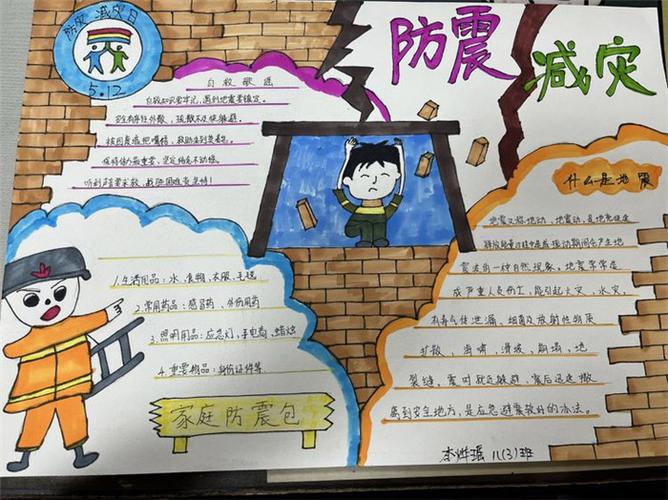 防震
减灾
防灾减灾日
5.12
自救歌谣
自救知识要牢记，遇到地震要镇定。
保持体力最重要，坚定信念不动摇。
1.生活用品：水、食物、衣服、毛毯
2.常用药品：感冒药、外伤用药
3.照明用品：应急灯、手电筒、蜡烛
4.重要物品：身份证件等。
家庭防震包
什么是地震
地震又称地动、地震动，是地壳快速
释放能量过程中造成振动期间会产生地
震波的一种自然现象，地震常常造
成严重人员伤亡，能引起火灾、水灾、
有毒气体泄漏、细菌及放射性物质
扩散、海啸、滑坡、崩塌、地
裂缝。震时就近躲避，震后迅速撤
离到安全地方，是应急避震较好的办法。
八(3)班